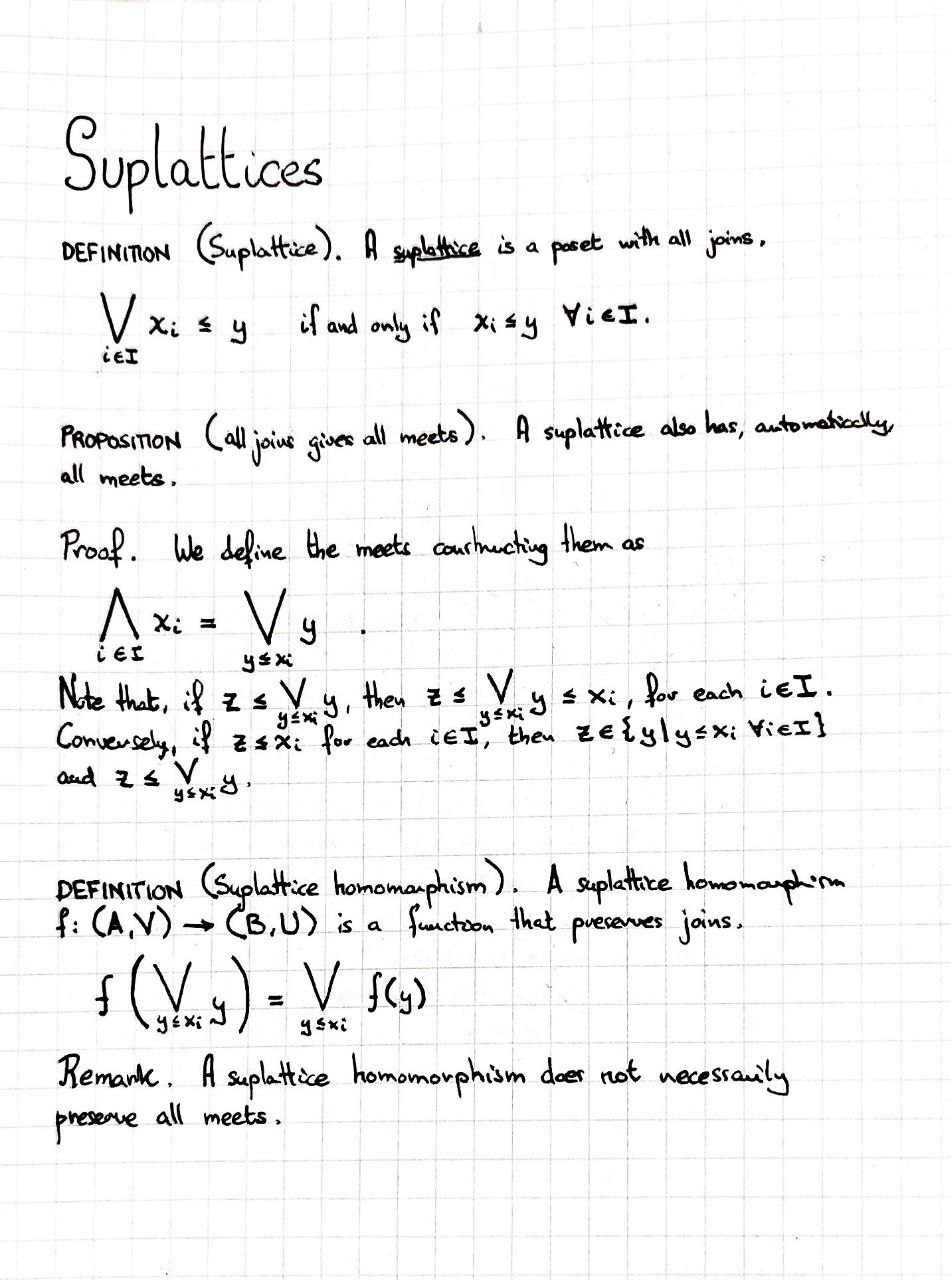 Suplattices
DEFINITION (Suplattice). A suplattice is a poset with all joins.
⋁_{i∈I} xᵢ ≤ y if and only if xᵢ ≤ y ∀i∈I.
PROPOSITION (all joins gives all meets). A suplattice also has, automatically,
all meets.
Proof. We define the meets constructing them as
⋀_{i∈I} xᵢ = ⋁_{y≤xᵢ} y .
Note that, if z ≤ ⋁_{y≤xᵢ} y, then z ≤ ⋁_{y≤xᵢ} y ≤ xᵢ, for each i∈I.
Conversely, if z≤xᵢ for each i∈I, then z∈{y|y≤xᵢ ∀i∈I}
and z ≤ ⋁_{y≤xᵢ} y.
DEFINITION (Suplattice homomorphism). A suplattice homomorphism
f: (A,∨) → (B,∪) is a function that preserves joins.
f(⋁_{y≤xᵢ} y) = ⋁_{y≤xᵢ} f(y)
Remark. A suplattice homomorphism does not necessarily
preserve all meets.